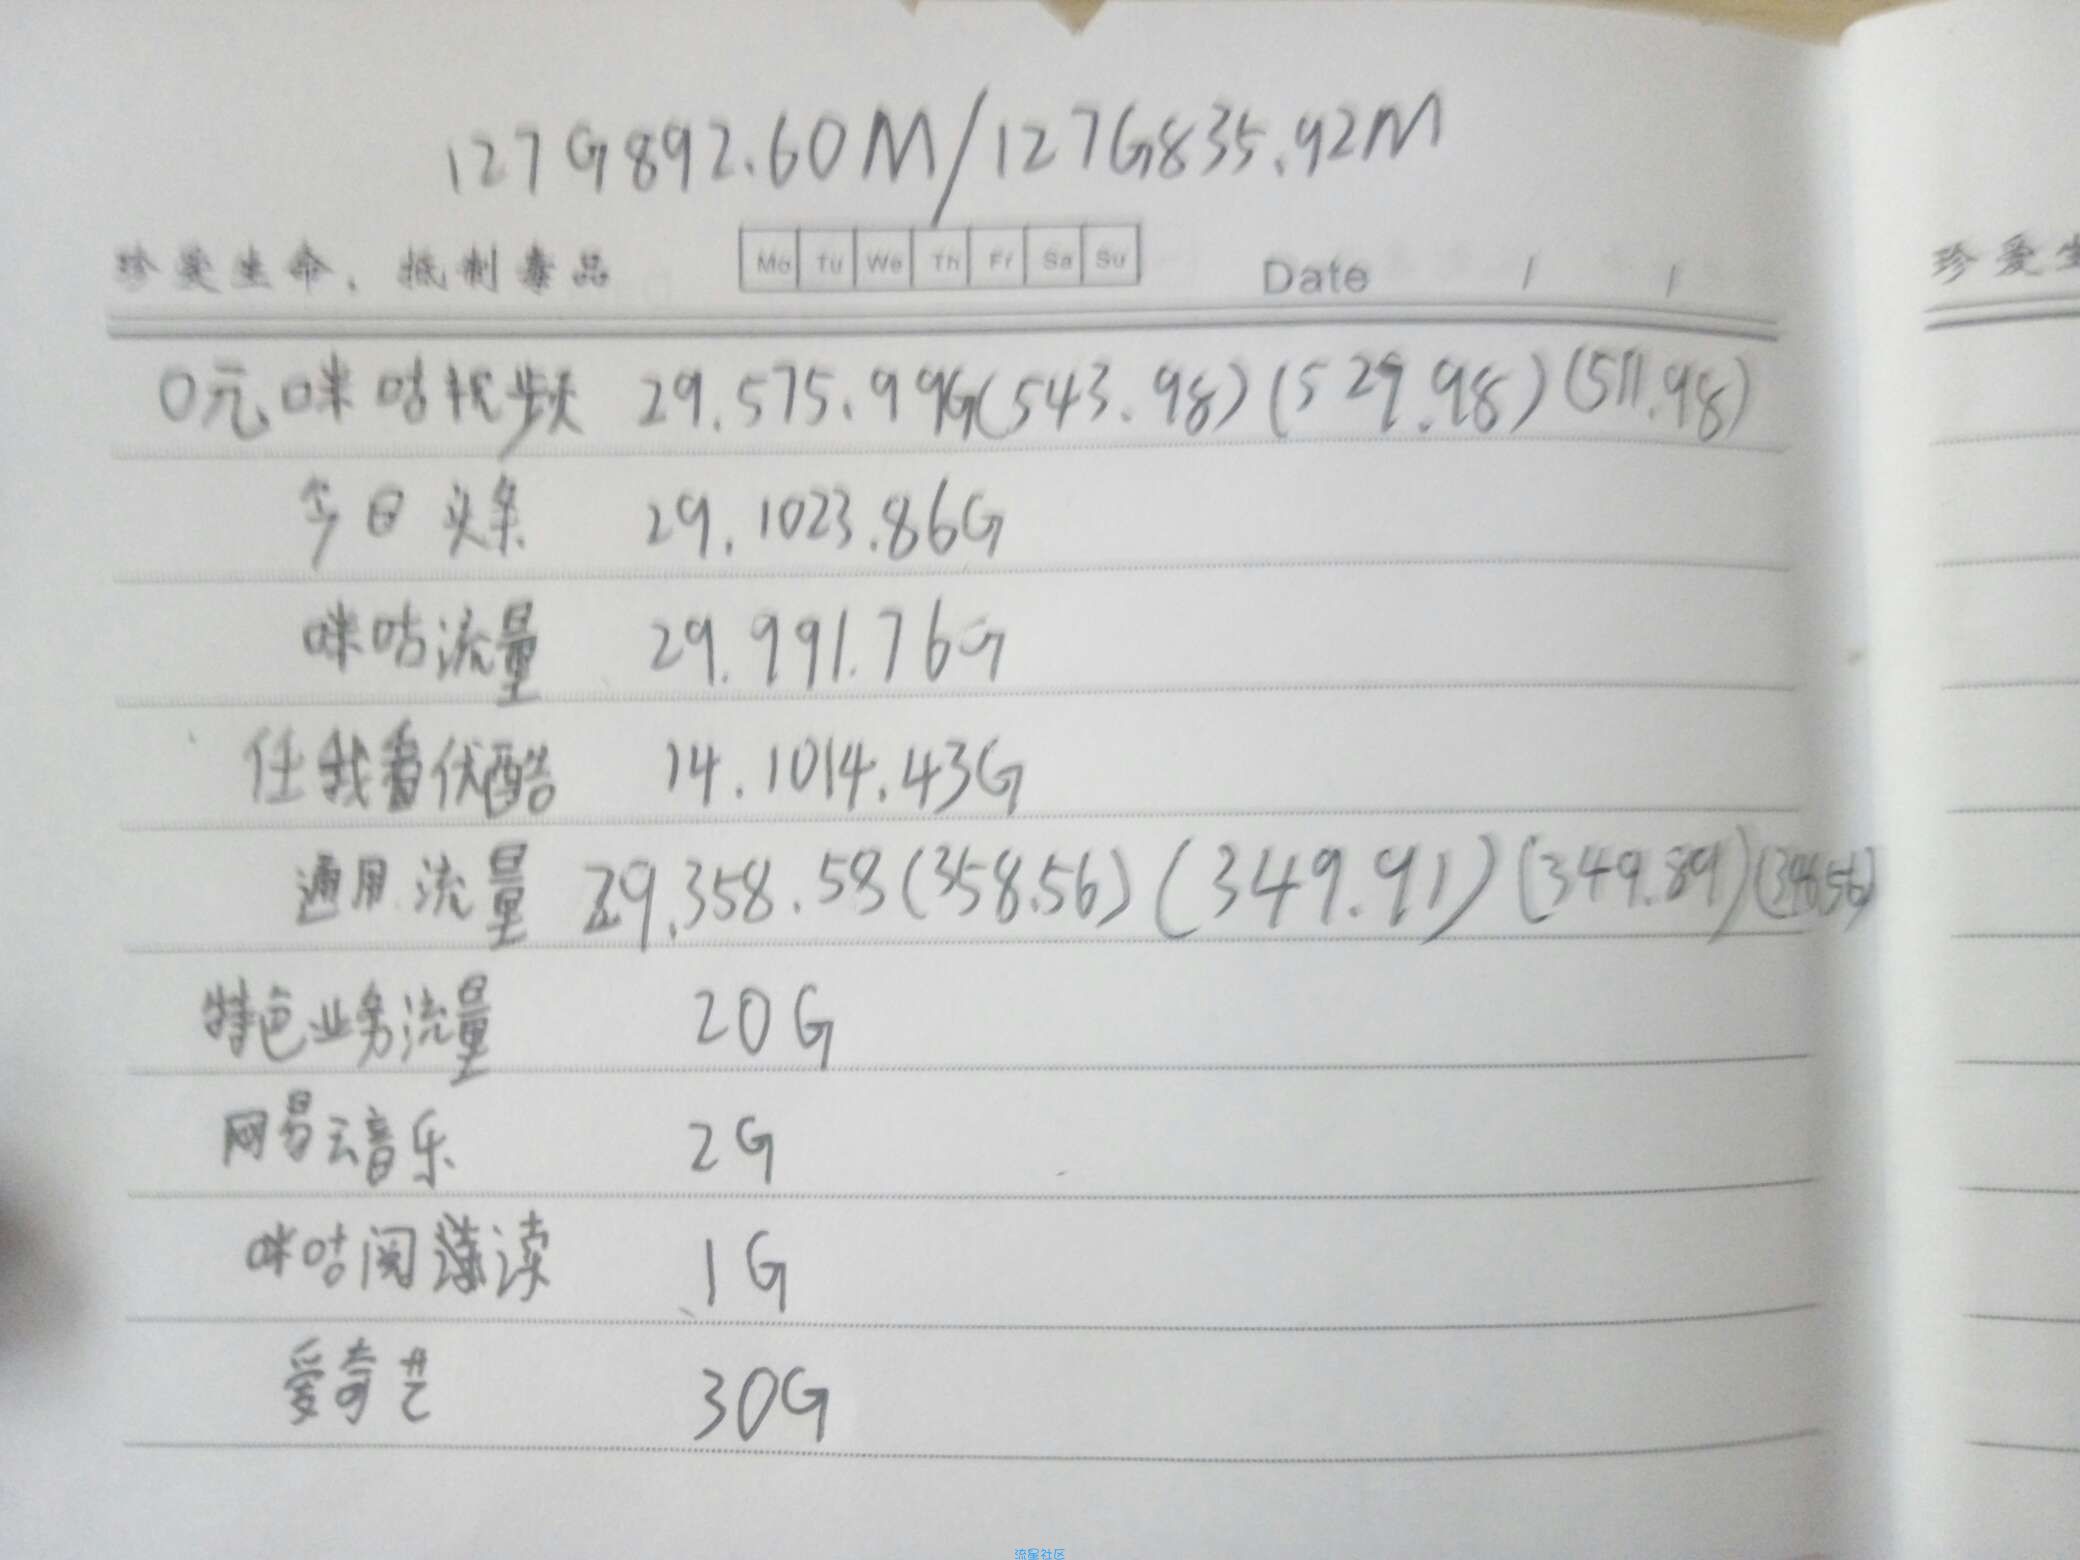 127G892.60M/127G835.92M
珍爱生命，抵制毒品 Mo Tu We Th Fr Sa Su Date / /
珍爱生
0元咪咕视频 29.575.99G(543.98)(529.98)(511.98)
今日头条 29.1023.86G
咪咕流量 29.991.76G
任我看优酷 14.1014.43G
通用流量 29.358.58(358.56)(349.91)(349.89)
特色业务流量 20G
网易云音乐 2G
咪咕阅读 1G
爱奇艺 30G
流星社区